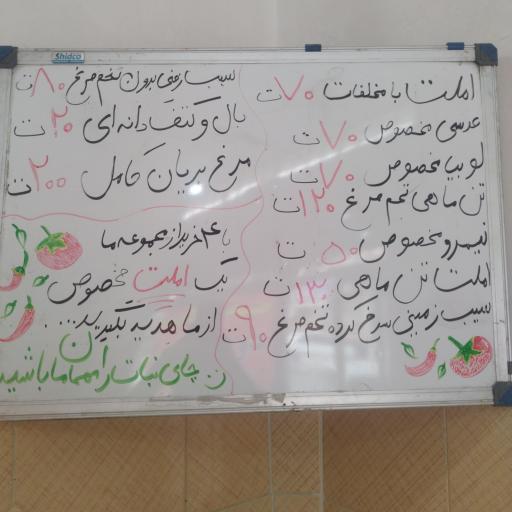 Shidco
املت با مخلفات ۷۰ ت
عدسی مخصوص ۷۰ ت
لوبیا مخصوص ۷۰ ت
تن ماهی تخم مرغ ۱۲۰ ت
نیمرو مخصوص ۵۰ ت
املت تن ماهی ۱۳۰ ت
سیب زمینی سرخ کرده تخم مرغ ۹۰ ت
سیب زمینی بدون تخم مرغ ۸۰ ت
بال و کتف دانه ای ۲۰ ت
مرغ بریان کامل ۲۰۰ ت
با ۴ خرید از مجموعه ما
یک املت مخصوص
از ما هدیه بگیرید...
چای نبات را مهمان ما باشید